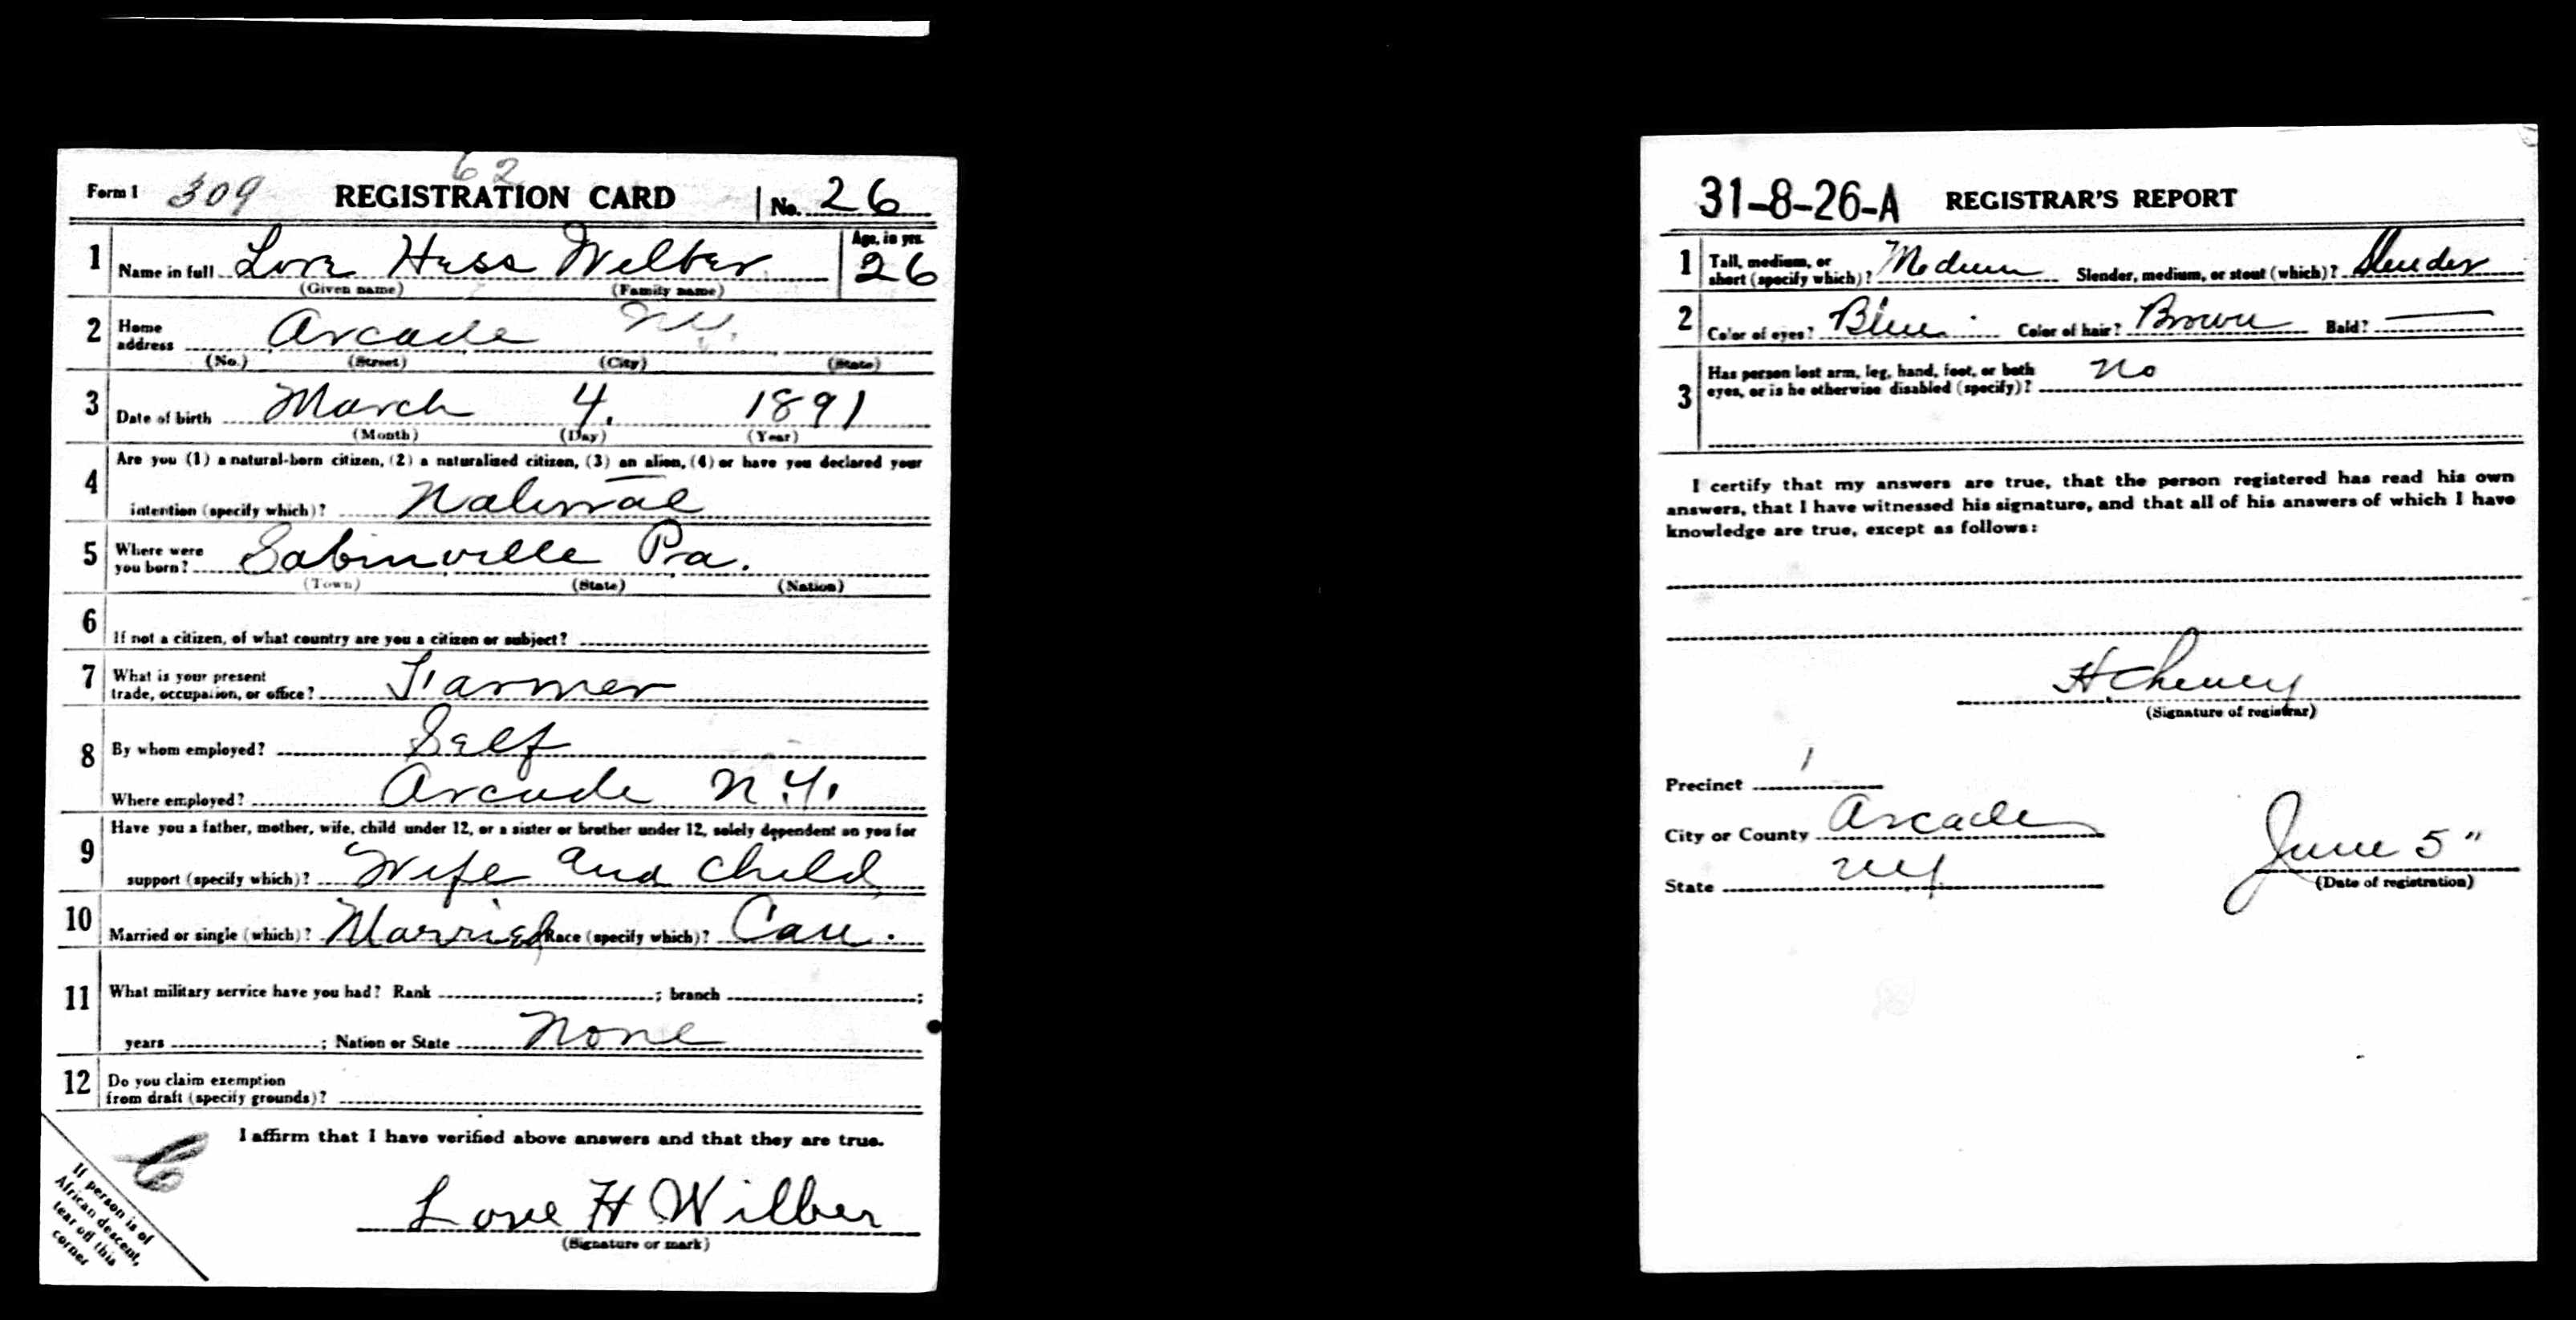 62
Form 1 309 REGISTRATION CARD No. 26
1 Name in full Love Hess Wilber Age, in yrs. 26
(Given name) (Family name)
2 Home address Arcade NY.
(No.) (Street) (City) (State)
3 Date of birth March 4, 1891
(Month) (Day) (Year)
4 Are you (1) a natural-born citizen, (2) a naturalized citizen, (3) an alien, (4) or have you declared your
intention (specify which)? Natural
5 Where were you born? Sabinville Pa.
(Town) (State) (Nation)
6 If not a citizen, of what country are you a citizen or subject?
7 What is your present
trade, occupation, or office? Farmer
8 By whom employed? Self
Where employed? Arcade N.Y.
9 Have you a father, mother, wife, child under 12, or a sister or brother under 12, solely dependent on you for
support (specify which)? Wife and child
10 Married or single (which)? Married Race (specify which)? Cau.
11 What military service have you had? Rank ; branch ;
years ; Nation or State None
12 Do you claim exemption
from draft (specify grounds)?
I affirm that I have verified above answers and that they are true.
Love H Wilber
(Signature or mark)
If person is of
African descent,
tear off this
corner
31-8-26-A REGISTRAR'S REPORT
1 Tall, medium, or
short (specify which)? Medium Slender, medium, or stout (which)? Slender
2 Color of eyes? Blue Color of hair? Brown Bald? —
3 Has person lost arm, leg, hand, foot, or both
eyes, or is he otherwise disabled (specify)? No
I certify that my answers are true, that the person registered has read his own
answers, that I have witnessed his signature, and that all of his answers of which I have
knowledge are true, except as follows:
H Cheney
(Signature of registrar)
Precinct 1
City or County Arcade
State NY
June 5"
(Date of registration)